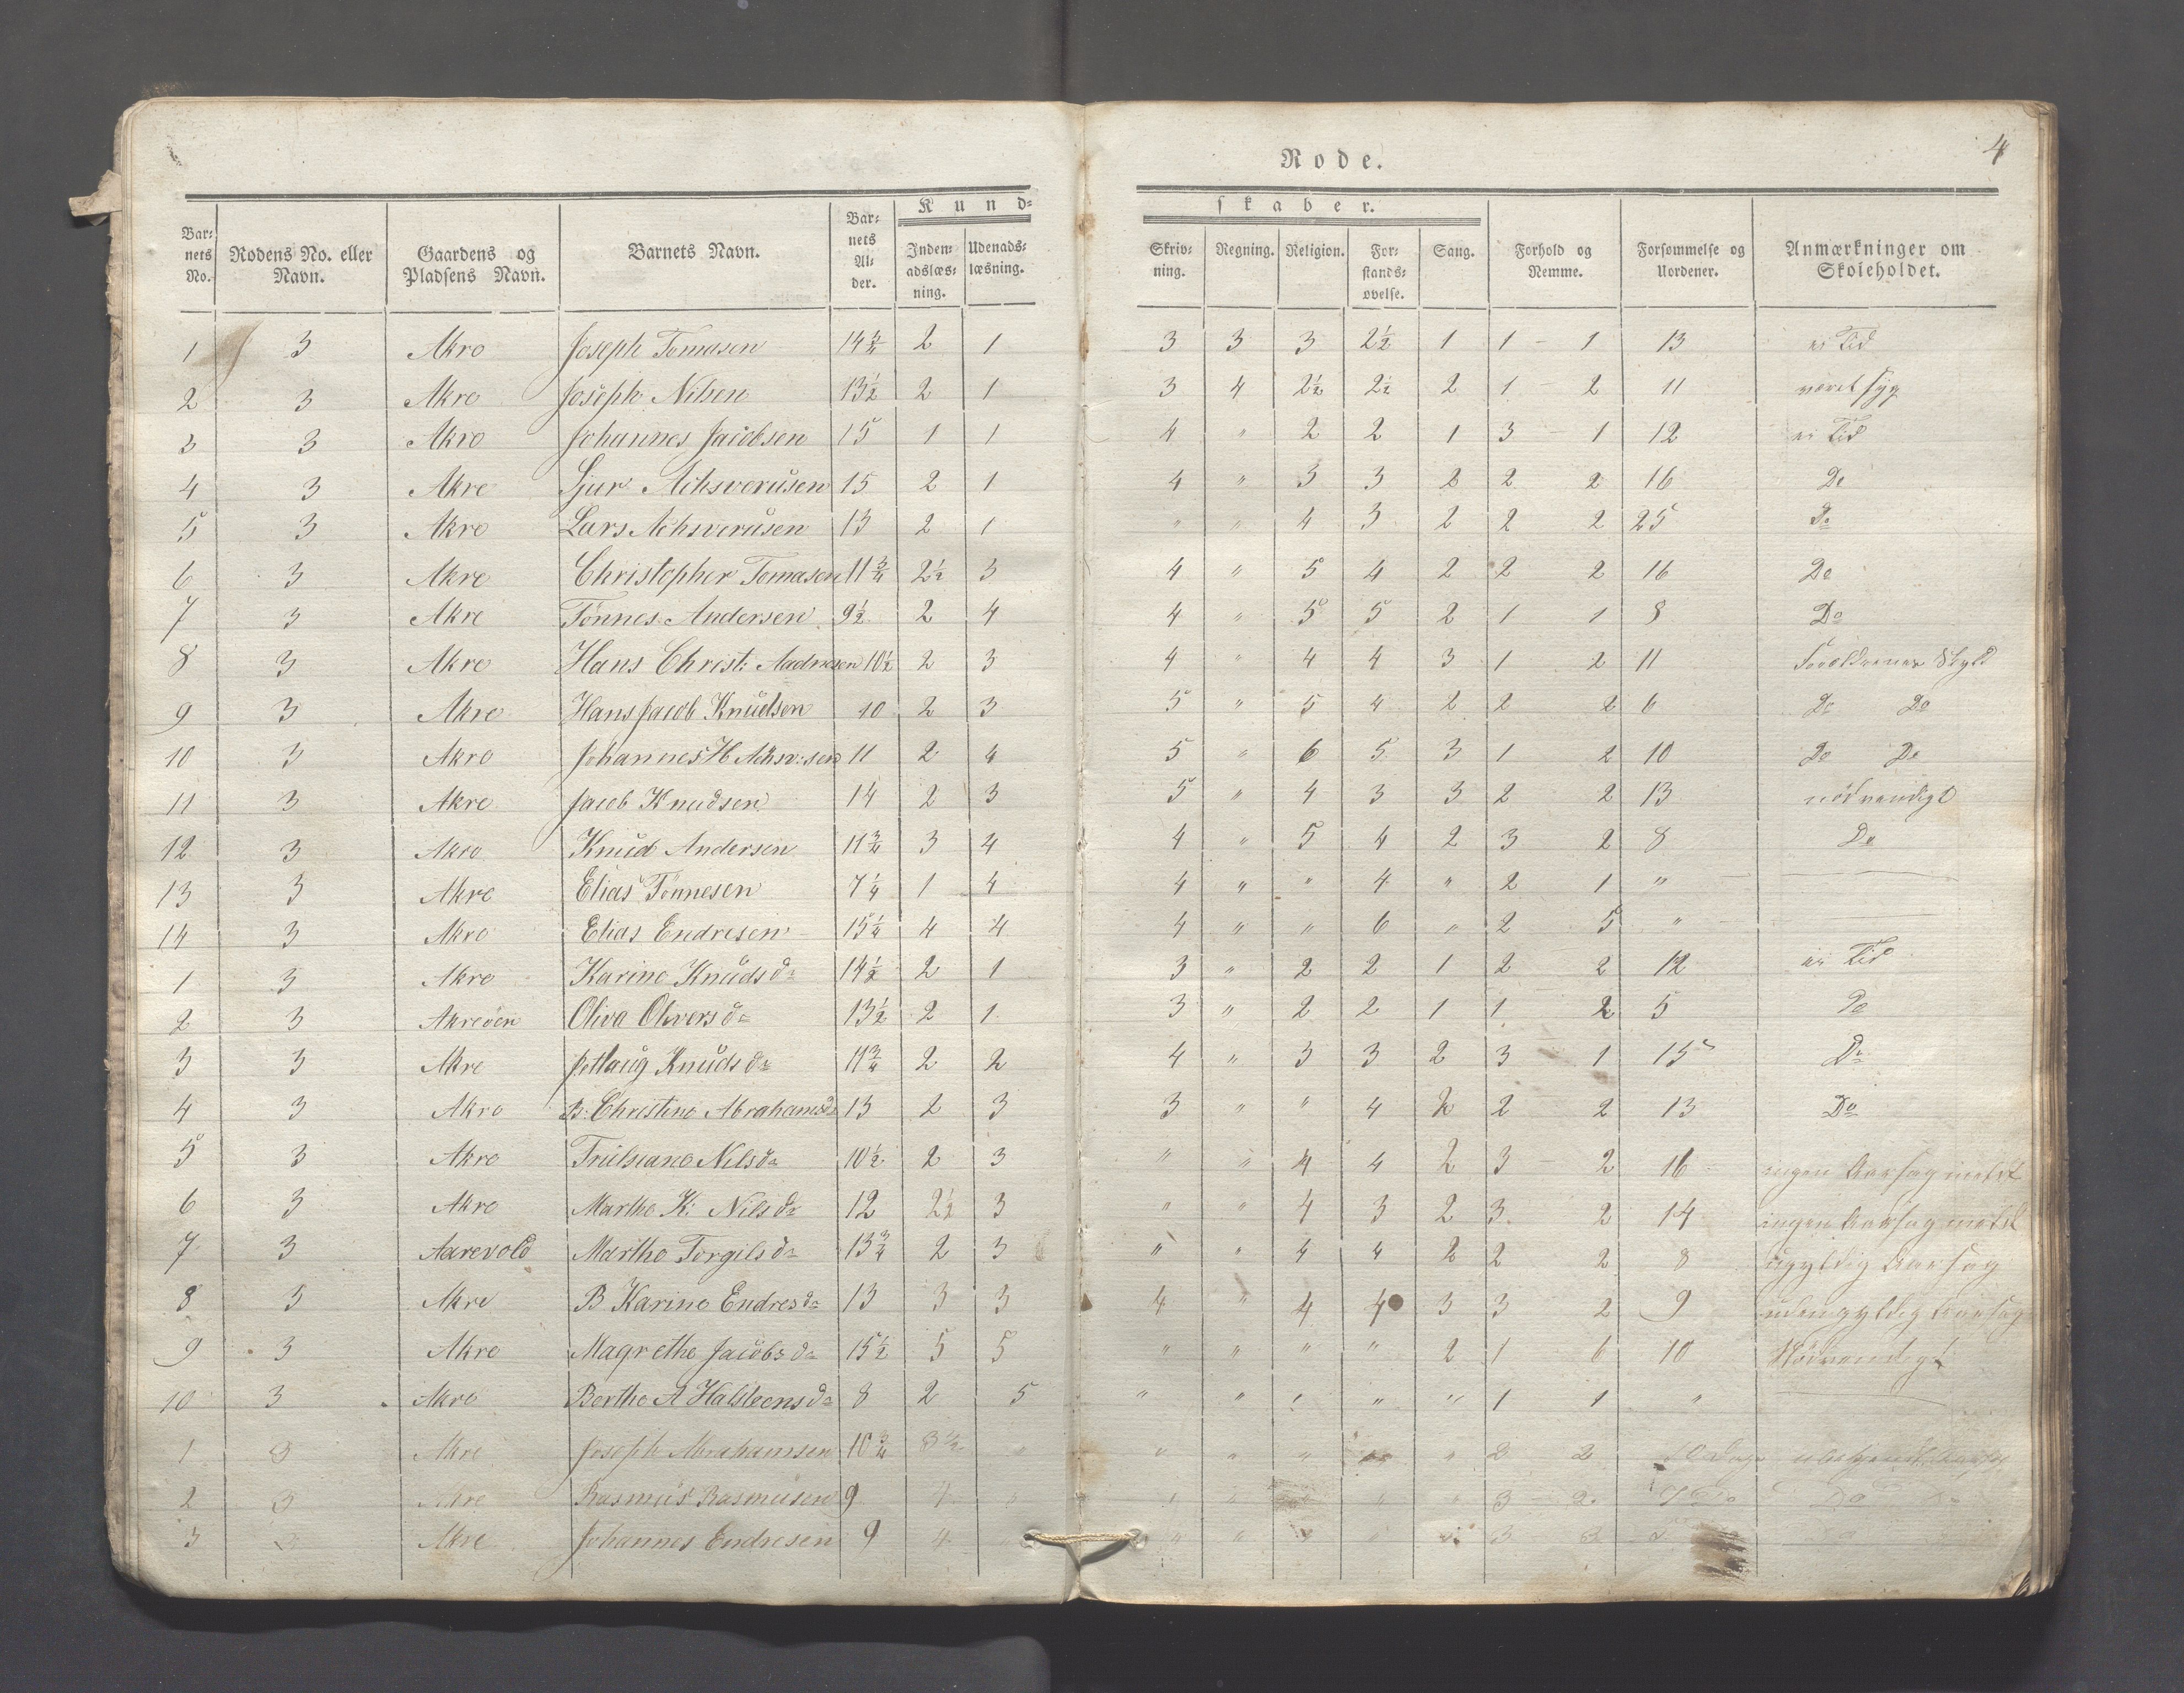 Rode.
4
Kund=
skaber.
Bar= nets No. | Rodens No. eller Navn. | Gaardens og Pladsens Navn. | Barnets Navn. | Bar= nets Al= der. | Inden= adslæs= ning. | Udenads= læsning. | Skriv= ning. | Regning. | Religion. | For= stands= øvelse. | Sang. | Forhold og Nemme. | Forsømmelse og Uordener. | Anmærkninger om Skoleholdet.
1 3 Akre Joseph Tomasen 14 3/4 2 1 3 3 3 2 1/2 1 1 - 1 13 ei Tid
2 3 Akre Joseph Nilsen 13 1/2 2 1 3 4 2 1/2 2 1/2 2 1 - 2 11 været syg
3 3 Akre Johannes Jacobsen 15 1 1 4 " 2 2 1 3 - 1 12 ei Tid
4 3 Akre Sjur Achsverusen 15 2 1 4 " 3 3 2 2 2 16 Do
5 3 Akre Lars Achsverusen 13 2 1 " " 4 3 2 2 2 25 Do
6 3 Akre Christopher Tomasen 11 3/4 2 1/2 3 4 " 5 4 2 2 2 16 Do
7 3 Akre Tönnes Andersen 9 1/2 2 4 4 " 5 5 2 1 1 8 Do
8 3 Akre Hans Christ: Aadnesen 10 1/2 2 3 4 " 4 4 3 1 2 11 Forældrenes Skyld
9 3 Akre Hans Jacob Knudsen 10 2 3 5 " 5 4 2 2 2 6 Do Do
10 3 Akre Johannes H Achsv:sen 11 2 4 5 " 6 5 3 1 2 10 Do Do
11 3 Akre Jacob Knudsen 14 2 3 5 " 4 3 3 2 2 13 nödvendigt
12 3 Akre Knud Andersen 11 3/4 3 4 4 " 5 4 2 3 2 8 Do
13 3 Akre Elias Tönnesen 7 1/4 1 4 4 " " 4 " 2 1 "
14 3 Akre Elias Endresen 15 1/4 4 4 4 " " 6 " 2 5 "
1 3 Akre Karine Knudsd: 14 1/2 2 1 3 " 2 2 1 2 2 12 ei Tid
2 3 Akreöen Oliva Oliversd: 13 1/2 2 1 3 " 2 2 1 1 2 5 Do
3 3 Akre Knudsd: 11 3/4 2 2 4 " 3 3 2 3 1 15 Do
4 3 Akre B: Christine Abrahamsd: 13 2 3 3 " " 4 2 2 2 13 Do
5 3 Akre Nilsd: 10 1/2 2 3 " " 4 4 2 3 2 16 ingen Aarsag meldt
6 3 Akre Marthe K: Nilsd: 12 2 1/2 3 " " 4 3 2 3 2 14 ingen Aarsag meldt
7 3 Aarevold Marthe Torgilsd: 13 3/4 2 3 " " 4 4 2 2 2 8 ugyldig Aarsag
8 3 Akre B Karine Endresd: 13 3 3 4 " 4 4 3 3 2 9 uden gyldig Aarsag
9 3 Akre Magrethe Jacobsd: 15 1/2 5 5 " " " " 2 1 6 10 Nödvendigt
10 3 Akre Berthe A Halsteensd: 8 2 5 " " " " " 1 1 "
1 3 Akre Joseph Abrahamsen 10 3/4 " " " " " 2 2
2 3 Akre Rasmus Rasmusen 9 4 " " " " 3 2 Do
3 3 Akre Johannes Endresen 9 4 " " " " 3